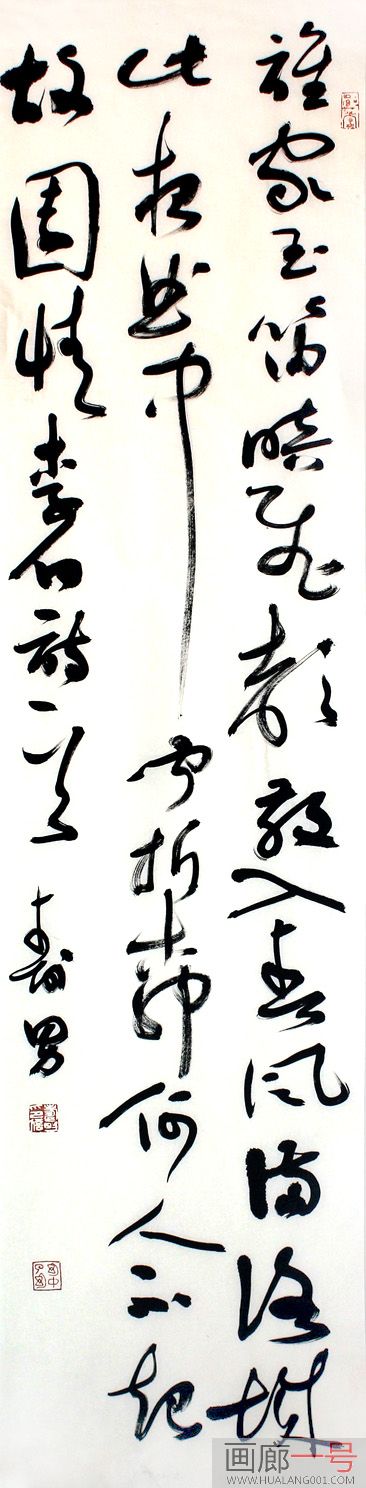 誰家玉笛暗飛聲散入春風滿洛城
此夜曲中聞折柳何人不起
故園情李白詩一首壽男
画廊一号
WWW.HUALANG001.COM